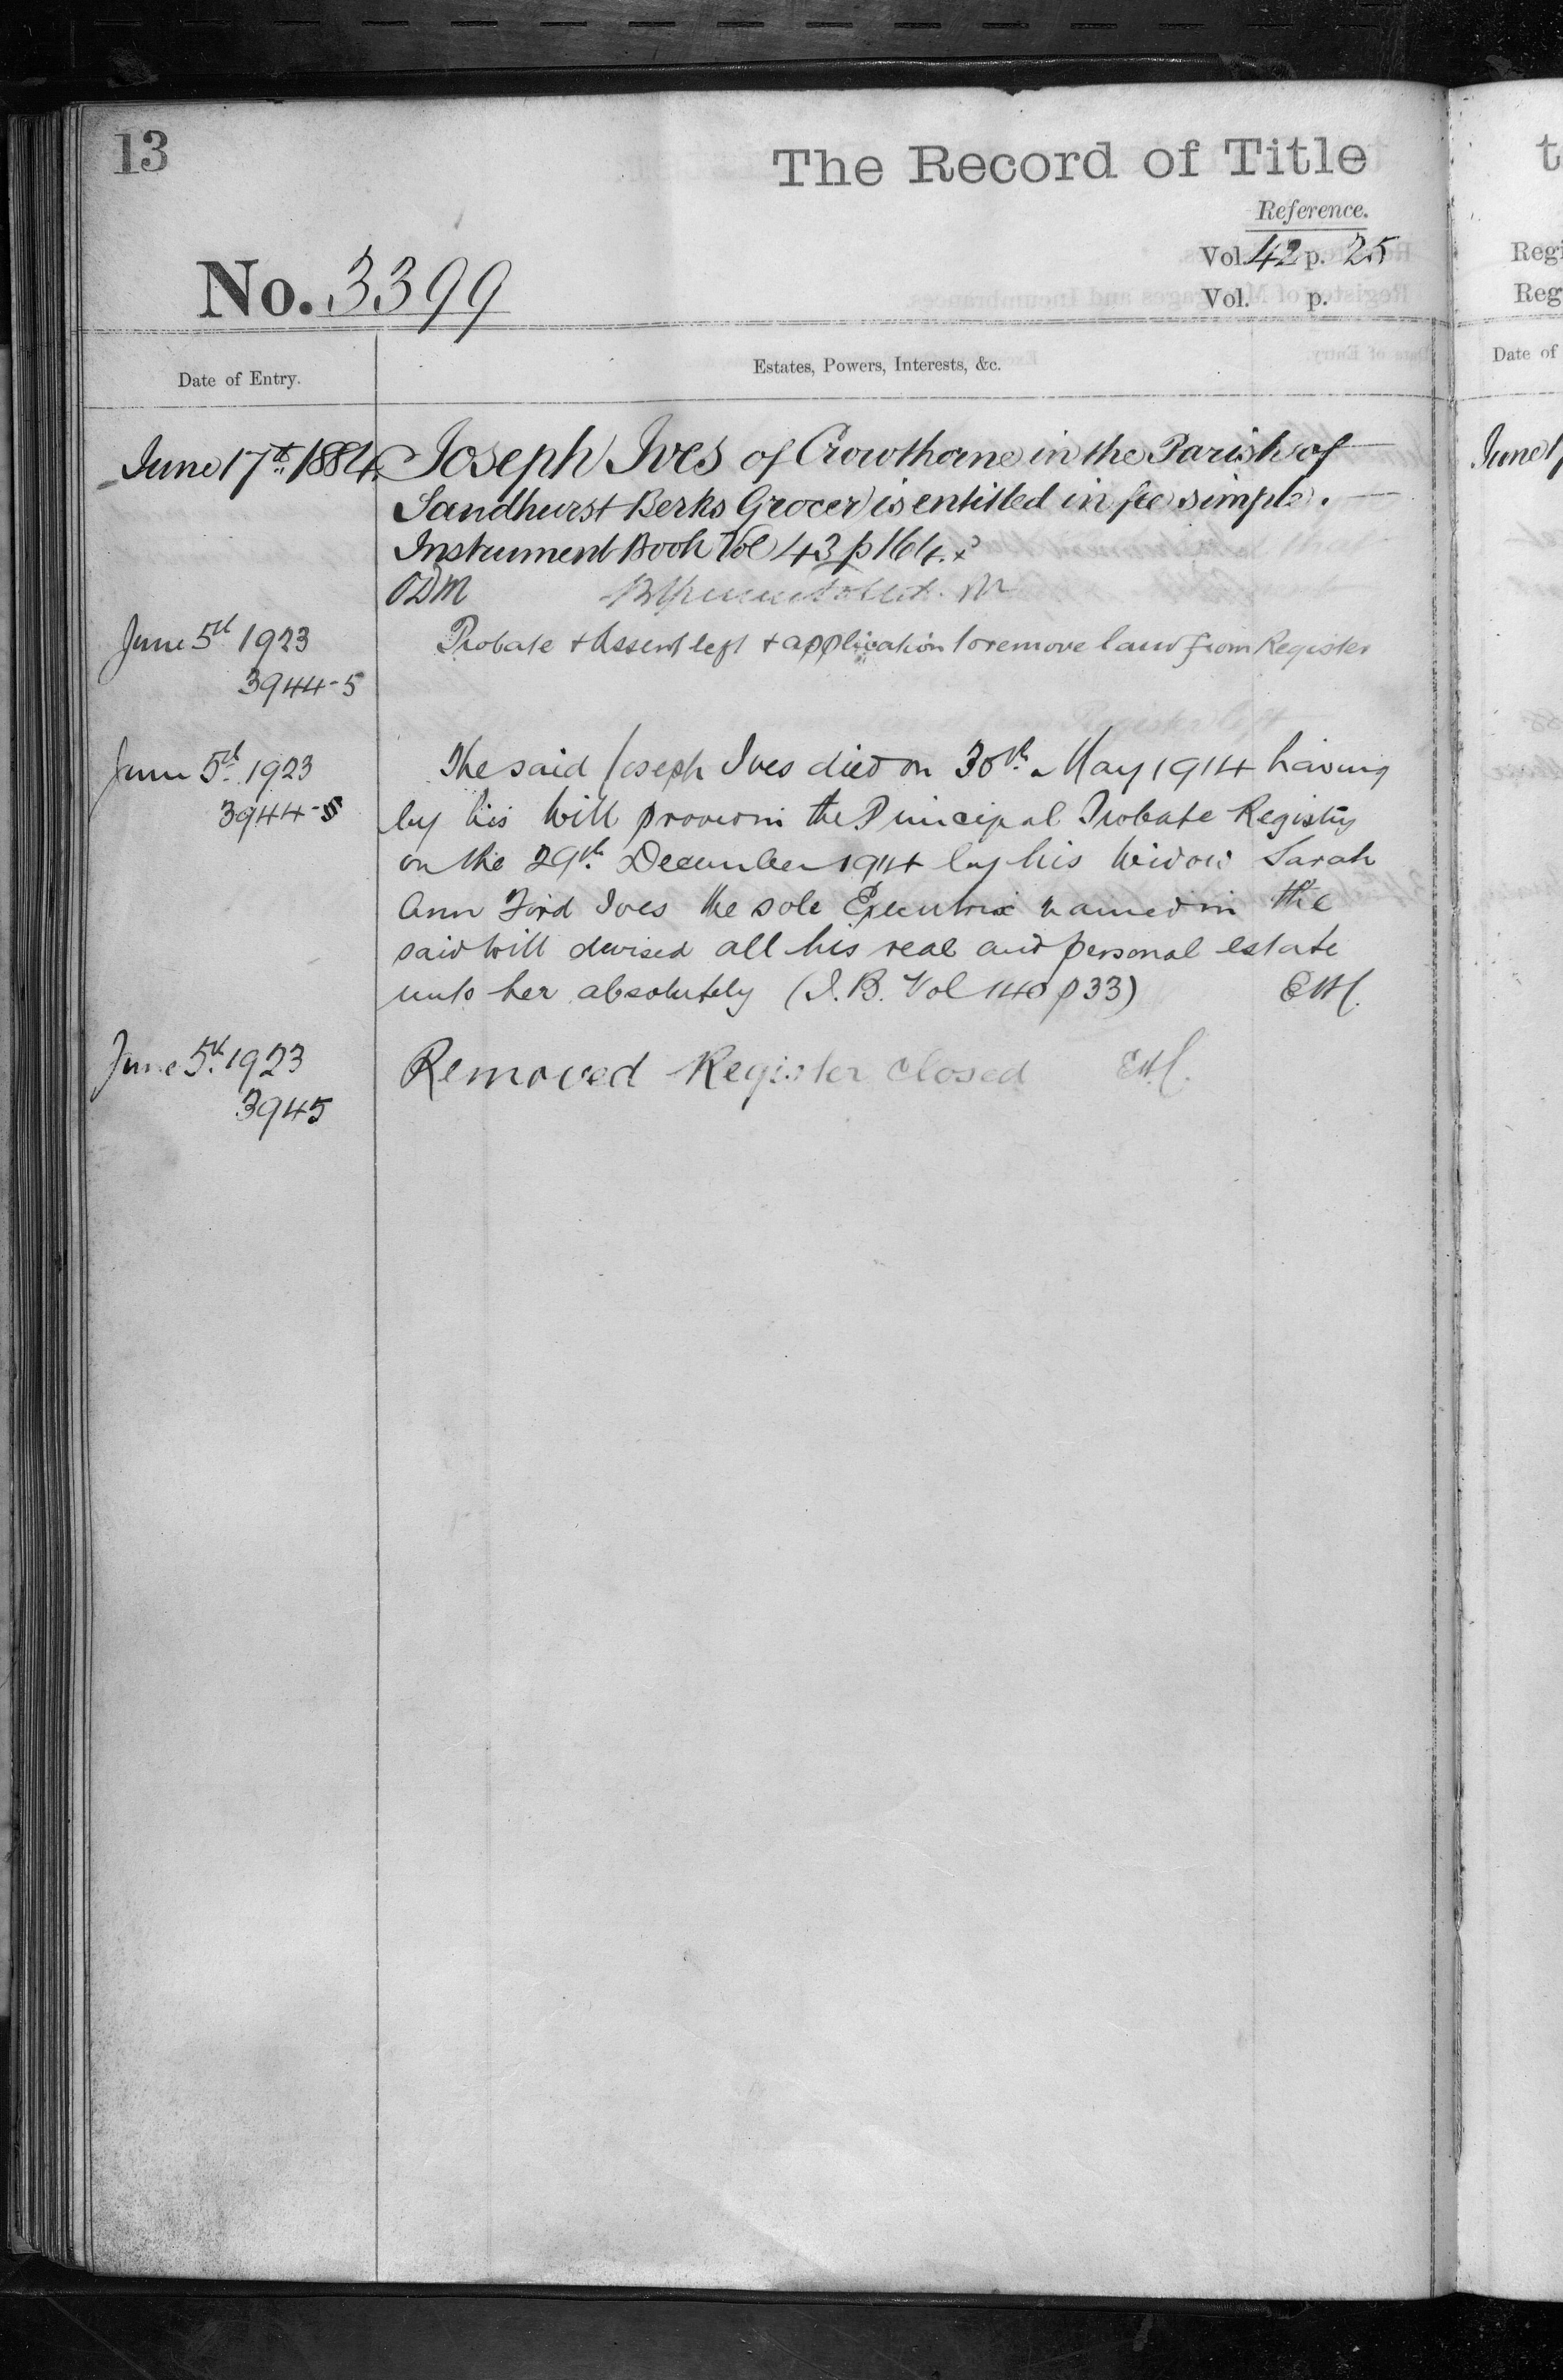 13
The Record of Title
Reference.
Vol. 42 p. 25
No. 3399
Vol. p.
Date of Entry.
Estates, Powers, Interests, &c.
June 17th 1884 Joseph Ives of Crowthorne in the Parish of
Sandhurst Berks Grocer is entitled in fee simple.
Instrument Book Vol 43 p 164.
ODM
June 5th 1923 Probate + Assent left + application to remove land from Register
3944-5
Register left
June 5th 1923 The said Joseph Ives died on 30th May 1914 having
3944-5 by his Will proved in the Principal Probate Registry
on the 29th December 1914 by his Widow Sarah
Ann Ford Ives the sole Executrix named in the
said Will devised all his real and personal estate
unto her absolutely (I.B. Vol 140 p 33)
June 5th 1923 Removed Register Closed
3945
t
Regi
Reg
Date of
June 1